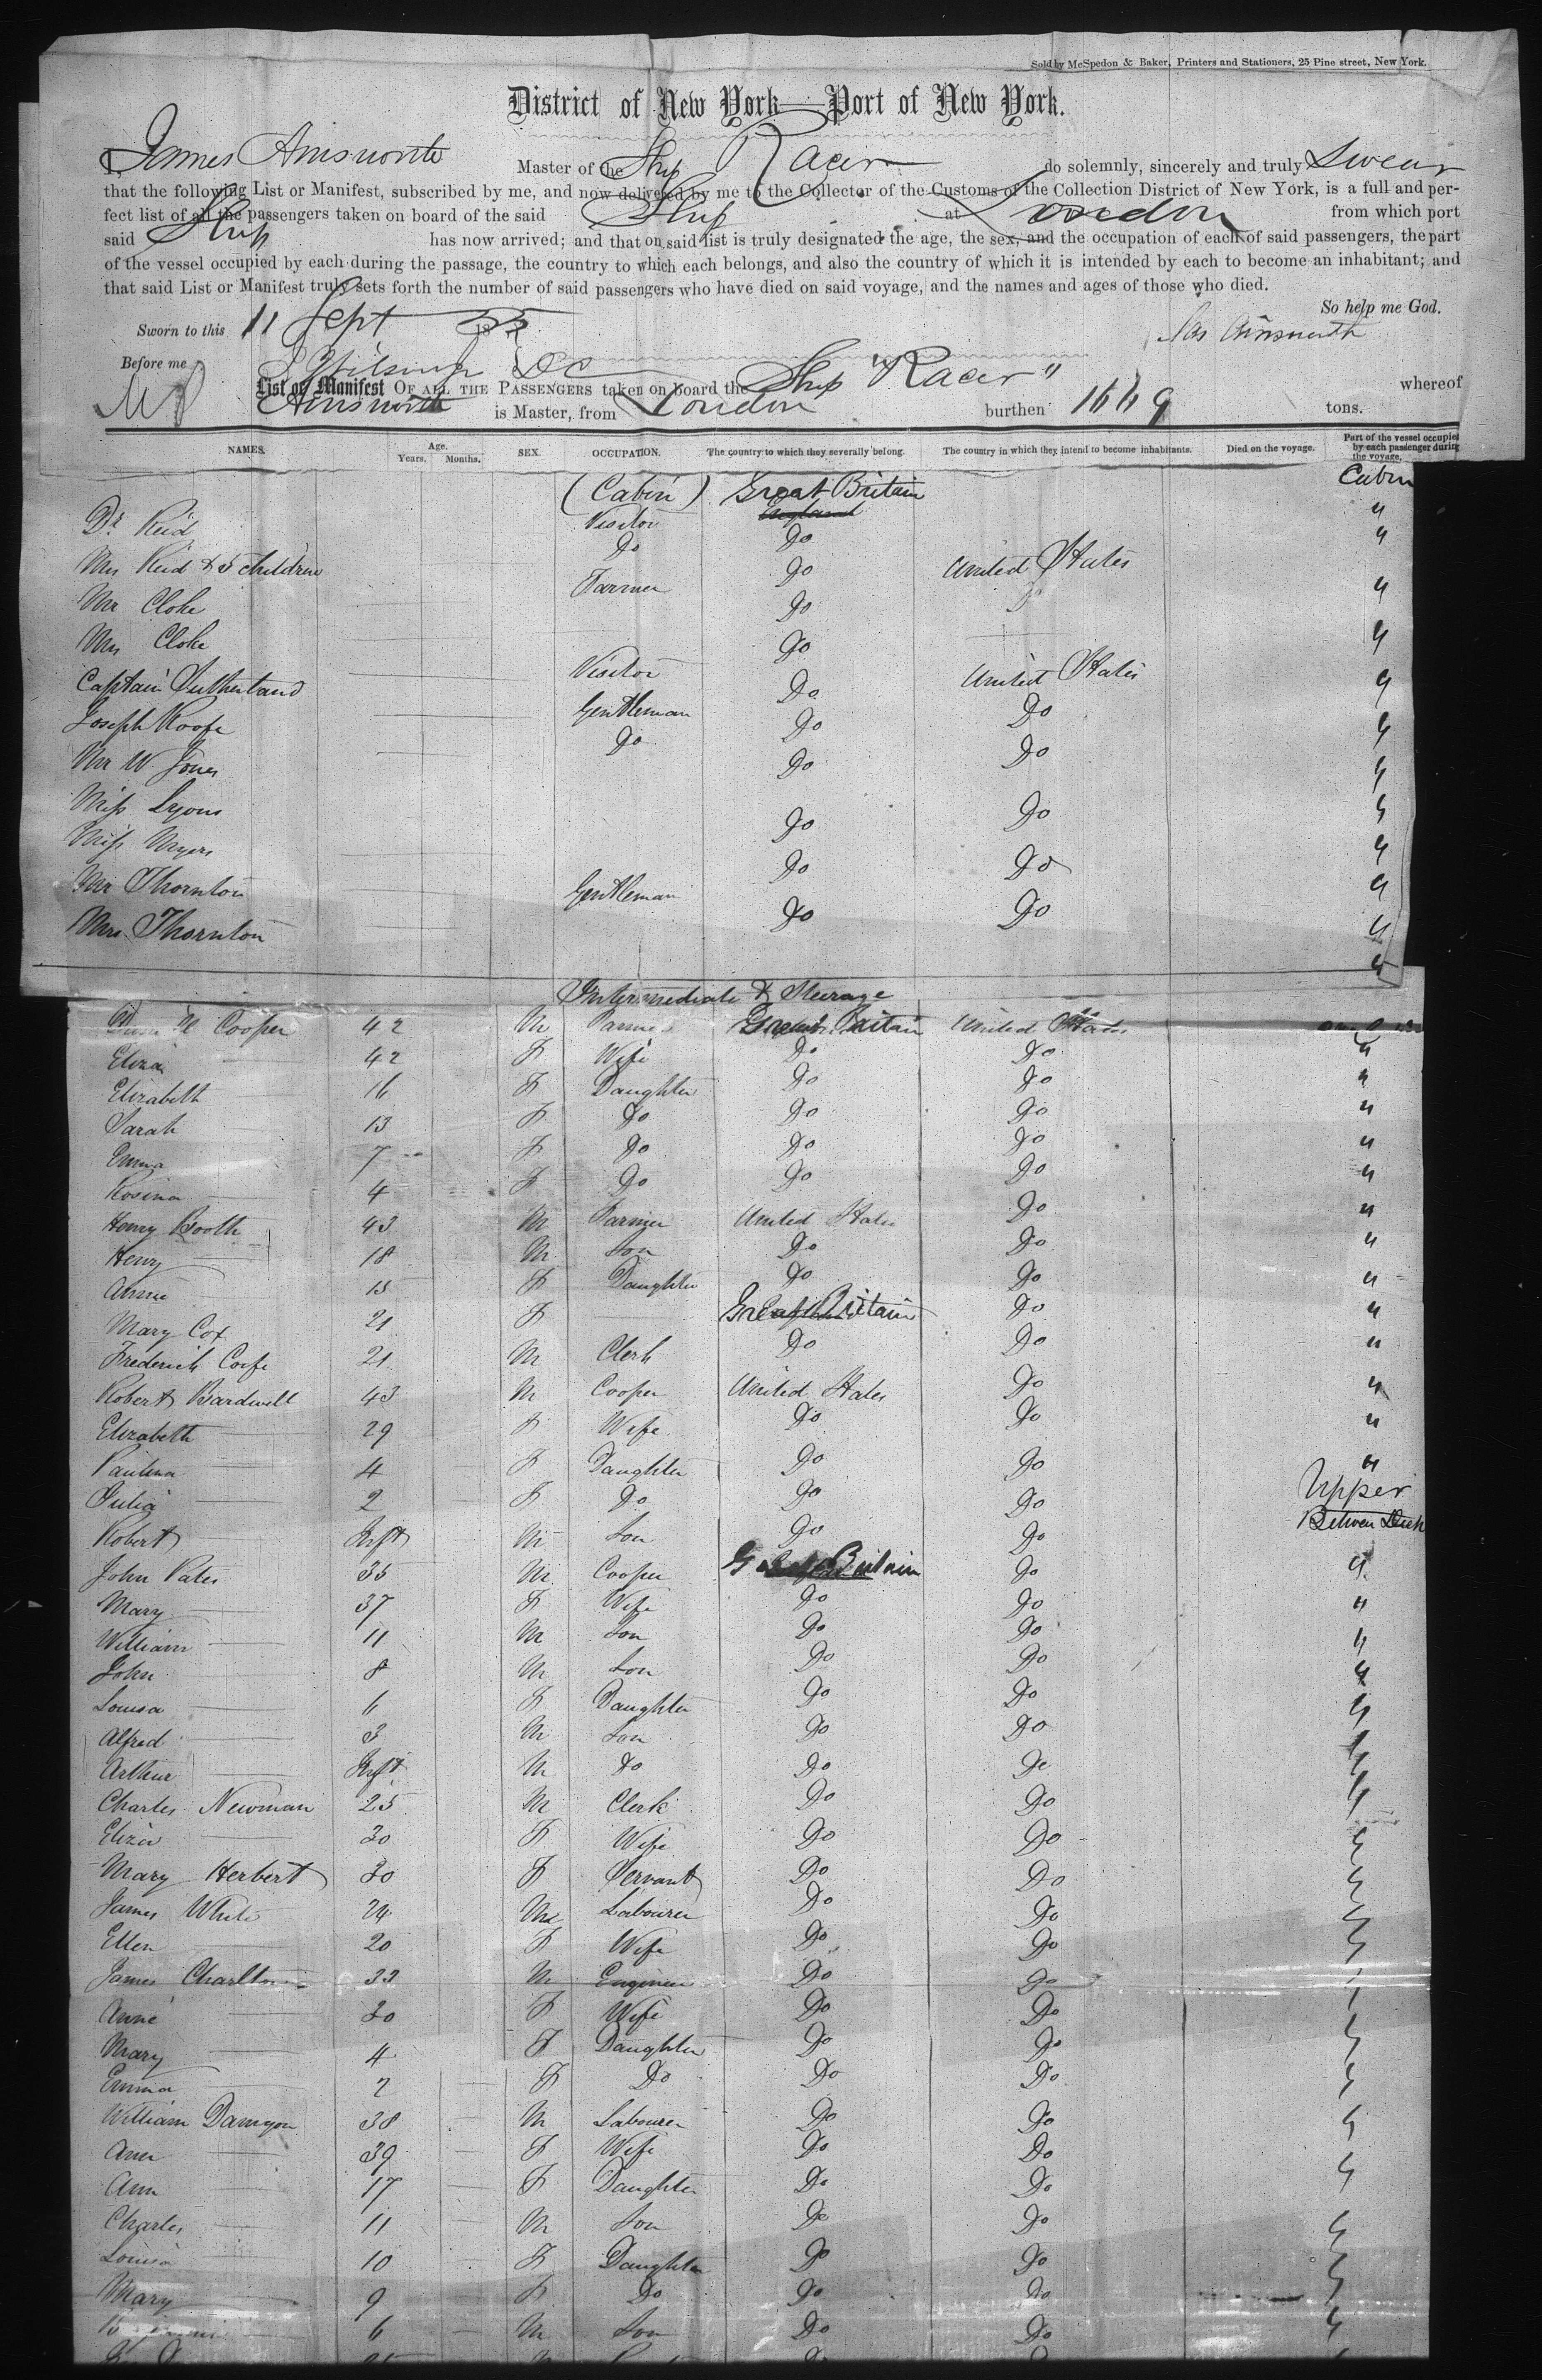 Sold by McSpedon & Baker, Printers and Stationers, 25 Pine street, New York.
District of New York—Port of New York.
I, James Ainsworth Master of the Ship Racer do solemnly, sincerely and truly Swear
that the following List or Manifest, subscribed by me, and now delivered by me to the Collector of the Customs of the Collection District of New York, is a full and per-
fect list of all the passengers taken on board of the said Ship at London from which port
said Ship has now arrived; and that on said list is truly designated the age, the sex, and the occupation of each of said passengers, the part
of the vessel occupied by each during the passage, the country to which each belongs, and also the country of which it is intended by each to become an inhabitant; and
that said List or Manifest truly sets forth the number of said passengers who have died on said voyage, and the names and ages of those who died.
So help me God.
Sworn to this 11 Sept 1855
Jas Ainsworth
Before me
List or Manifest OF ALL THE PASSENGERS taken on board the Ship "Racer" whereof
Ainsworth is Master, from London burthen 1669 tons.
NAMES. Age. Years. Months. SEX. OCCUPATION. The country to which they severally belong. The country in which they intend to become inhabitants. Died on the voyage. Part of the vessel occupied by each passenger during the voyage.
(Cabin) Great Britain Cabin
Dr Reid Visitor Do "
Mrs Reid & 5 children Do Do United States "
Mr Cloke Farmer Do Do "
Mrs Cloke Do "
Captain Sutherland Visitor Do United States "
Joseph Roofe Gentleman Do Do "
Mr W Jones Do Do Do "
Miss Lyons Do Do "
Miss Myers Do Do "
Mr Thornton Gentleman Do Do "
Mrs Thornton "
Intermediate & Steerage
Cooper 42 M Farmer Great Britain United States
Eliza 42 F Wife Do Do "
Elizabeth 16 F Daughter Do Do "
Sarah 13 F Do Do Do "
Emma 7 F Do Do Do "
Rosina 4 F Do Do Do "
Henry Booth 43 M Farmer United States Do "
Henry 18 M Son Do Do "
Annie 15 F Daughter Do Do "
Mary Cox 21 F Great Britain Do "
Frederick Cofe 21 M Clerk Do Do "
Robert Bardwell 43 M Cooper United States Do "
Elizabeth 29 F Wife Do Do "
Paulina 4 F Daughter Do Do "
Julia 2 F Do Do Do Upper
Robert Inft M Son Do Do Between Deck
John Pates 35 M Cooper Great Britain Do "
Mary 37 F Wife Do Do "
William 11 M Son Do Do "
John 8 M Son Do Do "
Louisa 6 F Daughter Do Do "
Alfred 3 M Son Do Do "
Arthur Inft M Do Do Do "
Charles Newman 25 M Clerk Do Do "
Eliza 30 F Wife Do Do "
Mary Herbert 30 F Servant Do Do "
James White 24 M Labourer Do Do "
Ellen 20 F Wife Do Do "
James Charlton 33 M Engineer Do Do "
Anne 30 F Wife Do Do "
Mary 4 F Daughter Do Do "
Emma 2 F Do Do Do "
William Damyon 38 M Labourer Do Do "
Ann 39 F Wife Do Do
Ann 17 F Daughter Do Do "
Charles 11 M Son Do Do "
Louisa 10 F Daughter Do Do "
Mary 9 F Do Do Do "
6 M Son Do Do "